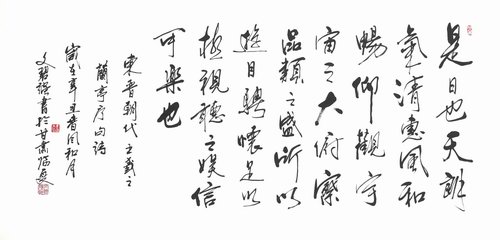 是日也天朗
氣清惠風和
暢仰觀宇
宙之大俯察
品類之盛所以
遊目騁懷足以
極視聽之娛信
可樂也
東晉朝代王羲之
蘭亭序句
歲在辛丑風和月
文書於甘肅臨夏